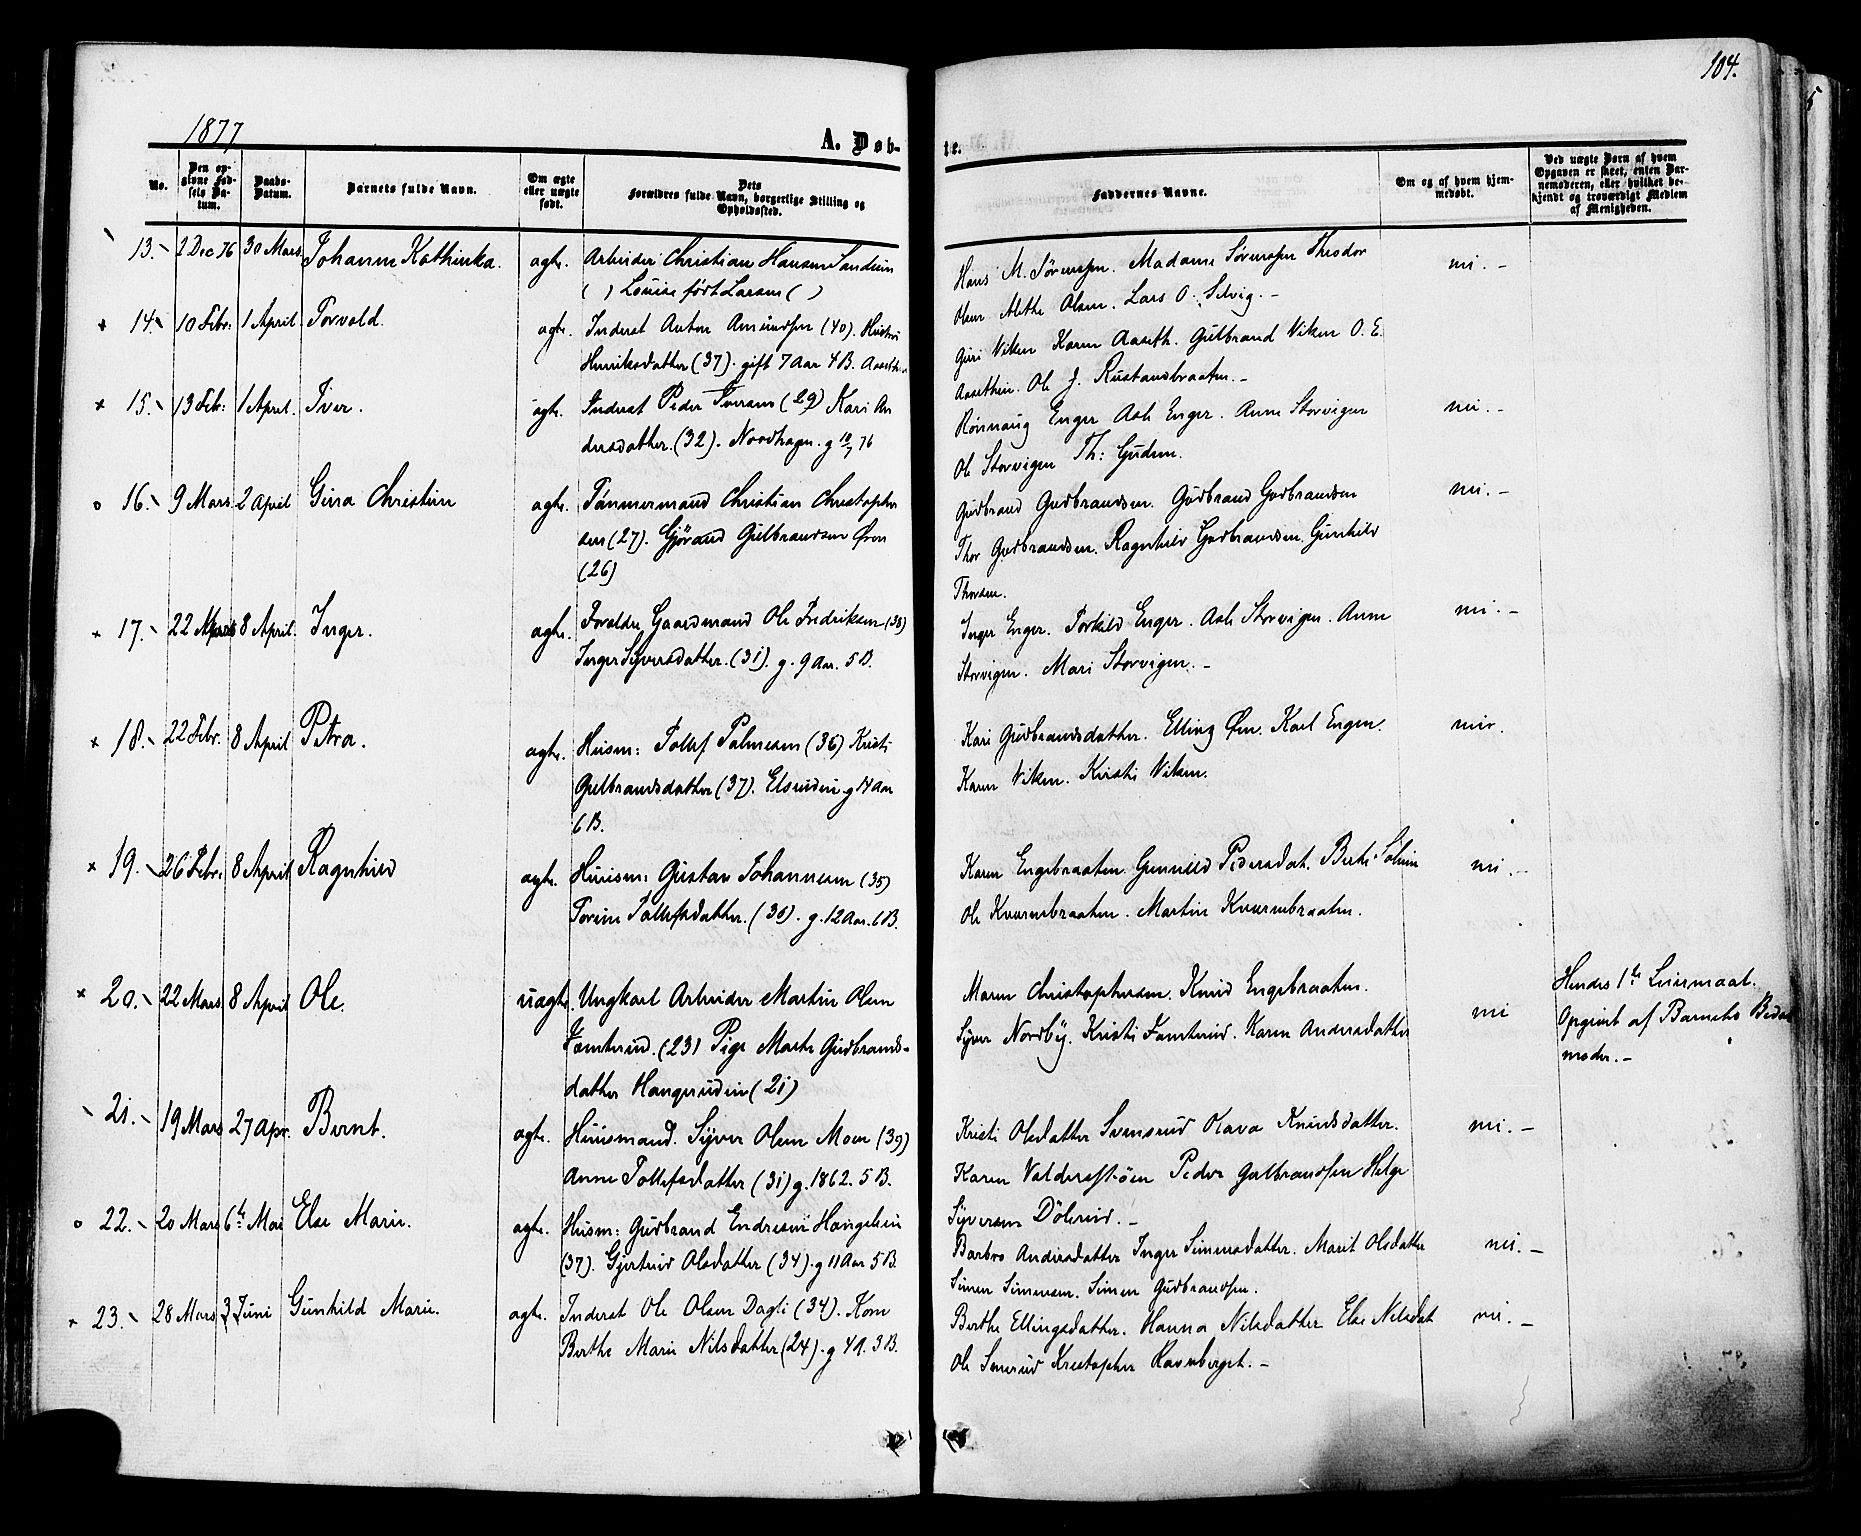 104.
1877
A. Døb-
te.
No.
Den op-
givne Fød-
sels Da-
tum.
Daabs-
Datum.
Barnets fulde Navn.
Om ægte
eller uægte
født.
Dets
Forældres fulde Navn, borgerlige Stilling og
Opholdssted.
Faddernes Navne.
Om og af hvem hjem-
medøbt.
Ved uægte Børn af hvem
Opgaven er skeet, enten Bar-
nemoderen, eller hvilket be-
kjendt og troværdigt Medlem
af Menigheden.
13. 2 Dec 76 30 Mars Johanne Kathinka. ægte. Arbeider Christian Hansen Sandviin
( ) Louise født Larsen ( )
Hans M. Sørensen. Madame Sørensen Theodor
Olsen Alethe Olsen. Lars O. Selvig. –
nei. –
14. 10 Febr. 1 April Torvald. ægte. Inderst Anton Amundsen (40). Hustru
Henriksdatter (37). gift 7 Aar 4 B. Aaseth
Guri Viken Karen Aaseth. Gulbrand Viken O. E.
Aasethen. Ole J. Rustandbraaten. –
15. 13 Feb: 1 April. Iver. ægte. Inderst Peder Iversen (29) Kari An
dersdatter. (32). Nordhagen. g 18/7 76
Rønnaug Enger Asle Enger. Anne Storvigen
Ole Storvigen Th: Gudem.
nei. –
16. 9 Mars 2 April Gina Christine ægte. Tømmermand Christian Christopher
sen (27). Gjøraud Gulbrandsen Øren
(26)
Gudbrand Gudbrandsen. Gudbrand Gudbrandsen
Thor Gudbrandsen. Ragnhild Gudbrandsen. Gunhild
Thorsen.
nei. –
17. 22 Mars 8 April. Inger. ægte. Forældre Gaardmand Ole Fredriksen (38)
Inger Syversdatter. (31). g. 9 Aar. 5 B.
Inger Enger. Torkild Enger. Asle Storvigen. Anne
Storvigen. Mari Storvigen. –
nei. –
18. 22 Febr. 8 April Petra. ægte. Husm: Tollef Palmesen (36) Kristi
Gulbrandsdatter (37). Elsrudin. g 14 Aar
6 B.
Kari Gudbrandsdatter. Elling Øen. Karl Engen.
Karen Viken. Kirsti Viken.
nei.
19. 26 Febr. 8 April Ragnhild ægte. Huusm: Gustav Johannesen (35)
Torine Tollefsdatter. (30). g. 12 Aar. 6 B.
Karen Engebraaten. Gunnild Pedersdat. Berthe Solium
Ole Kværnbraaten. Martin Kværnbraaten.
nei. –
20. 22 Mars 8 April Ole. uægte. Ungkarl Arbeider Martin Olsen
Tomterud. (23) Pige Marthe Gudbrands-
datter Haugerudin (21)
Maren Christophersen. Knud Engebraaten.
Syver Nordby. Kristi Tomterud. Karen Andersdatter
nei
Hendes 1te Leiermaal.
Opgivet af Barnets Bedste
moder. –
21. 19 Mars 27 Apr. Bernt. ægte. Huusmand. Syver Olsen Moen (39)
Anne Tollefsdatter (31) g. 1862. 5 B.
Kristi Olsdatter Svensrud Olava Knudsdatter.
Karen Valdersstøen Peder Gulbrandsen Helge
Syversen Dølerud. –
nei. –
22. 20 Mars 6te Mai Else Marie. ægte. Husm: Gudbrand Endresen Haugelien
(37). Gjertrud Olsdatter (34). g 11 Aar 5 B.
Barbro Andersdatter Inger Simensdatter. Marit Olsdatter
Simen Simensen. Simen Gudbrandsen.
nei. –
23. 28 Mars 3 Juni Gunhild Marie. ægte. Inderst Ole Olsen Dagli (34). Kone
Berthe Marie Nilsdatter (24). g 4 A. 3 B.
Berthe Ellingsdatter. Hanna Nilsdatter Else Nilsdat
Ole Semrud Kristopher Ravnberget. –
nei. –